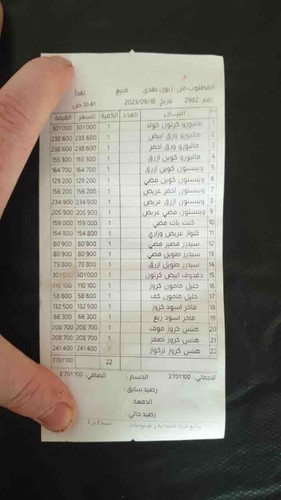 المطلوب من : زبون نقدي البيع نقداً
رقم: 2962 تاريخ: 2023/09/18 10:41 ص
البيان العدد الكمية السعر القيمة
1 مالبورو كرتون كولد 1 301000 301000
2 مالبورو ورق ابيض 1 238 600 238 600
3 مالبورو ورق احمر 1 238 600 238 600
4 مالبورو كوين ازرق 1 155 300 155 300
5 وينستون كوين ازرق 1 164 700 164 700
6 وينستون كوين فضي 1 129 200 129 200
7 وينستون احمر عريض 1 156 200 156 200
8 وينستون ازرق عريض 1 234 900 234 900
9 وينستون فضي عريض 1 205 900 205 900
10 كنت بات فضي 1 159 000 159 000
11 كلواز عريض وزاري 1 154 800 154 800
12 سيدرز قصير فضي 1 80 900 80 900
13 سيدرز طويل فضي 1 80 900 80 900
14 سيدرز طويل ازرق 1 73 800 73 800
15 دفدوف ابيض كرتون 1 301000
16 خليل مامون كروز 1 110 100
17 خليل مامون كف 1 58 600 58 600
18 فاخر اسود كروز 1 132 500 132 500
19 فاخر اسود ربع 1 66 300 66 300
20 هنس كروز موف 1 208 700 208 700
21 هنس كروز اصفر 1 208 700 208 700
22 هنس كروز تركواز 1 241 400 241 400
22 3'701'100
الاجمالي : 3'701'100 الحسم : الصافي : 3'701'100
رصيد سابق :
الدفعة :
رصيد حالي :